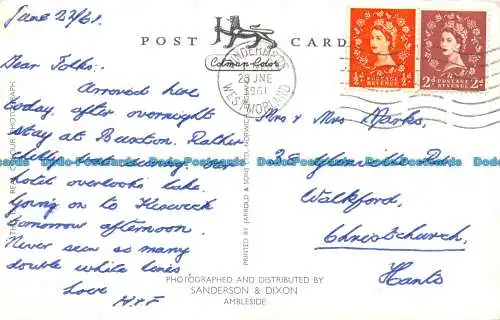 June 23/61.
POST CARD
Colman-Color
WINDERMERE
23 JNE
1961
WESTMORLAND
½d POSTAGE REVENUE ½d
2d POSTAGE REVENUE 2d
Dear Folks:-
Arrived here
today, after overnight
stay at Buxton. Rather
chilly
hotel overlooks lake.
Going on to Keswick
tomorrow afternoon.
Never seen so many
double white lines.
Love H & F
Mrs & Mrs Marks,
Walkford,
Christchurch,
Hants
THIS IS A REAL COLOUR PHOTOGRAPH
PRINTED BY JARROLD & SONS LTD. NORWICH
PHOTOGRAPHED AND DISTRIBUTED BY
SANDERSON & DIXON
AMBLESIDE
Dodo-Postcards Dodo-Postcards Dodo-Postcards Dodo-Postcards